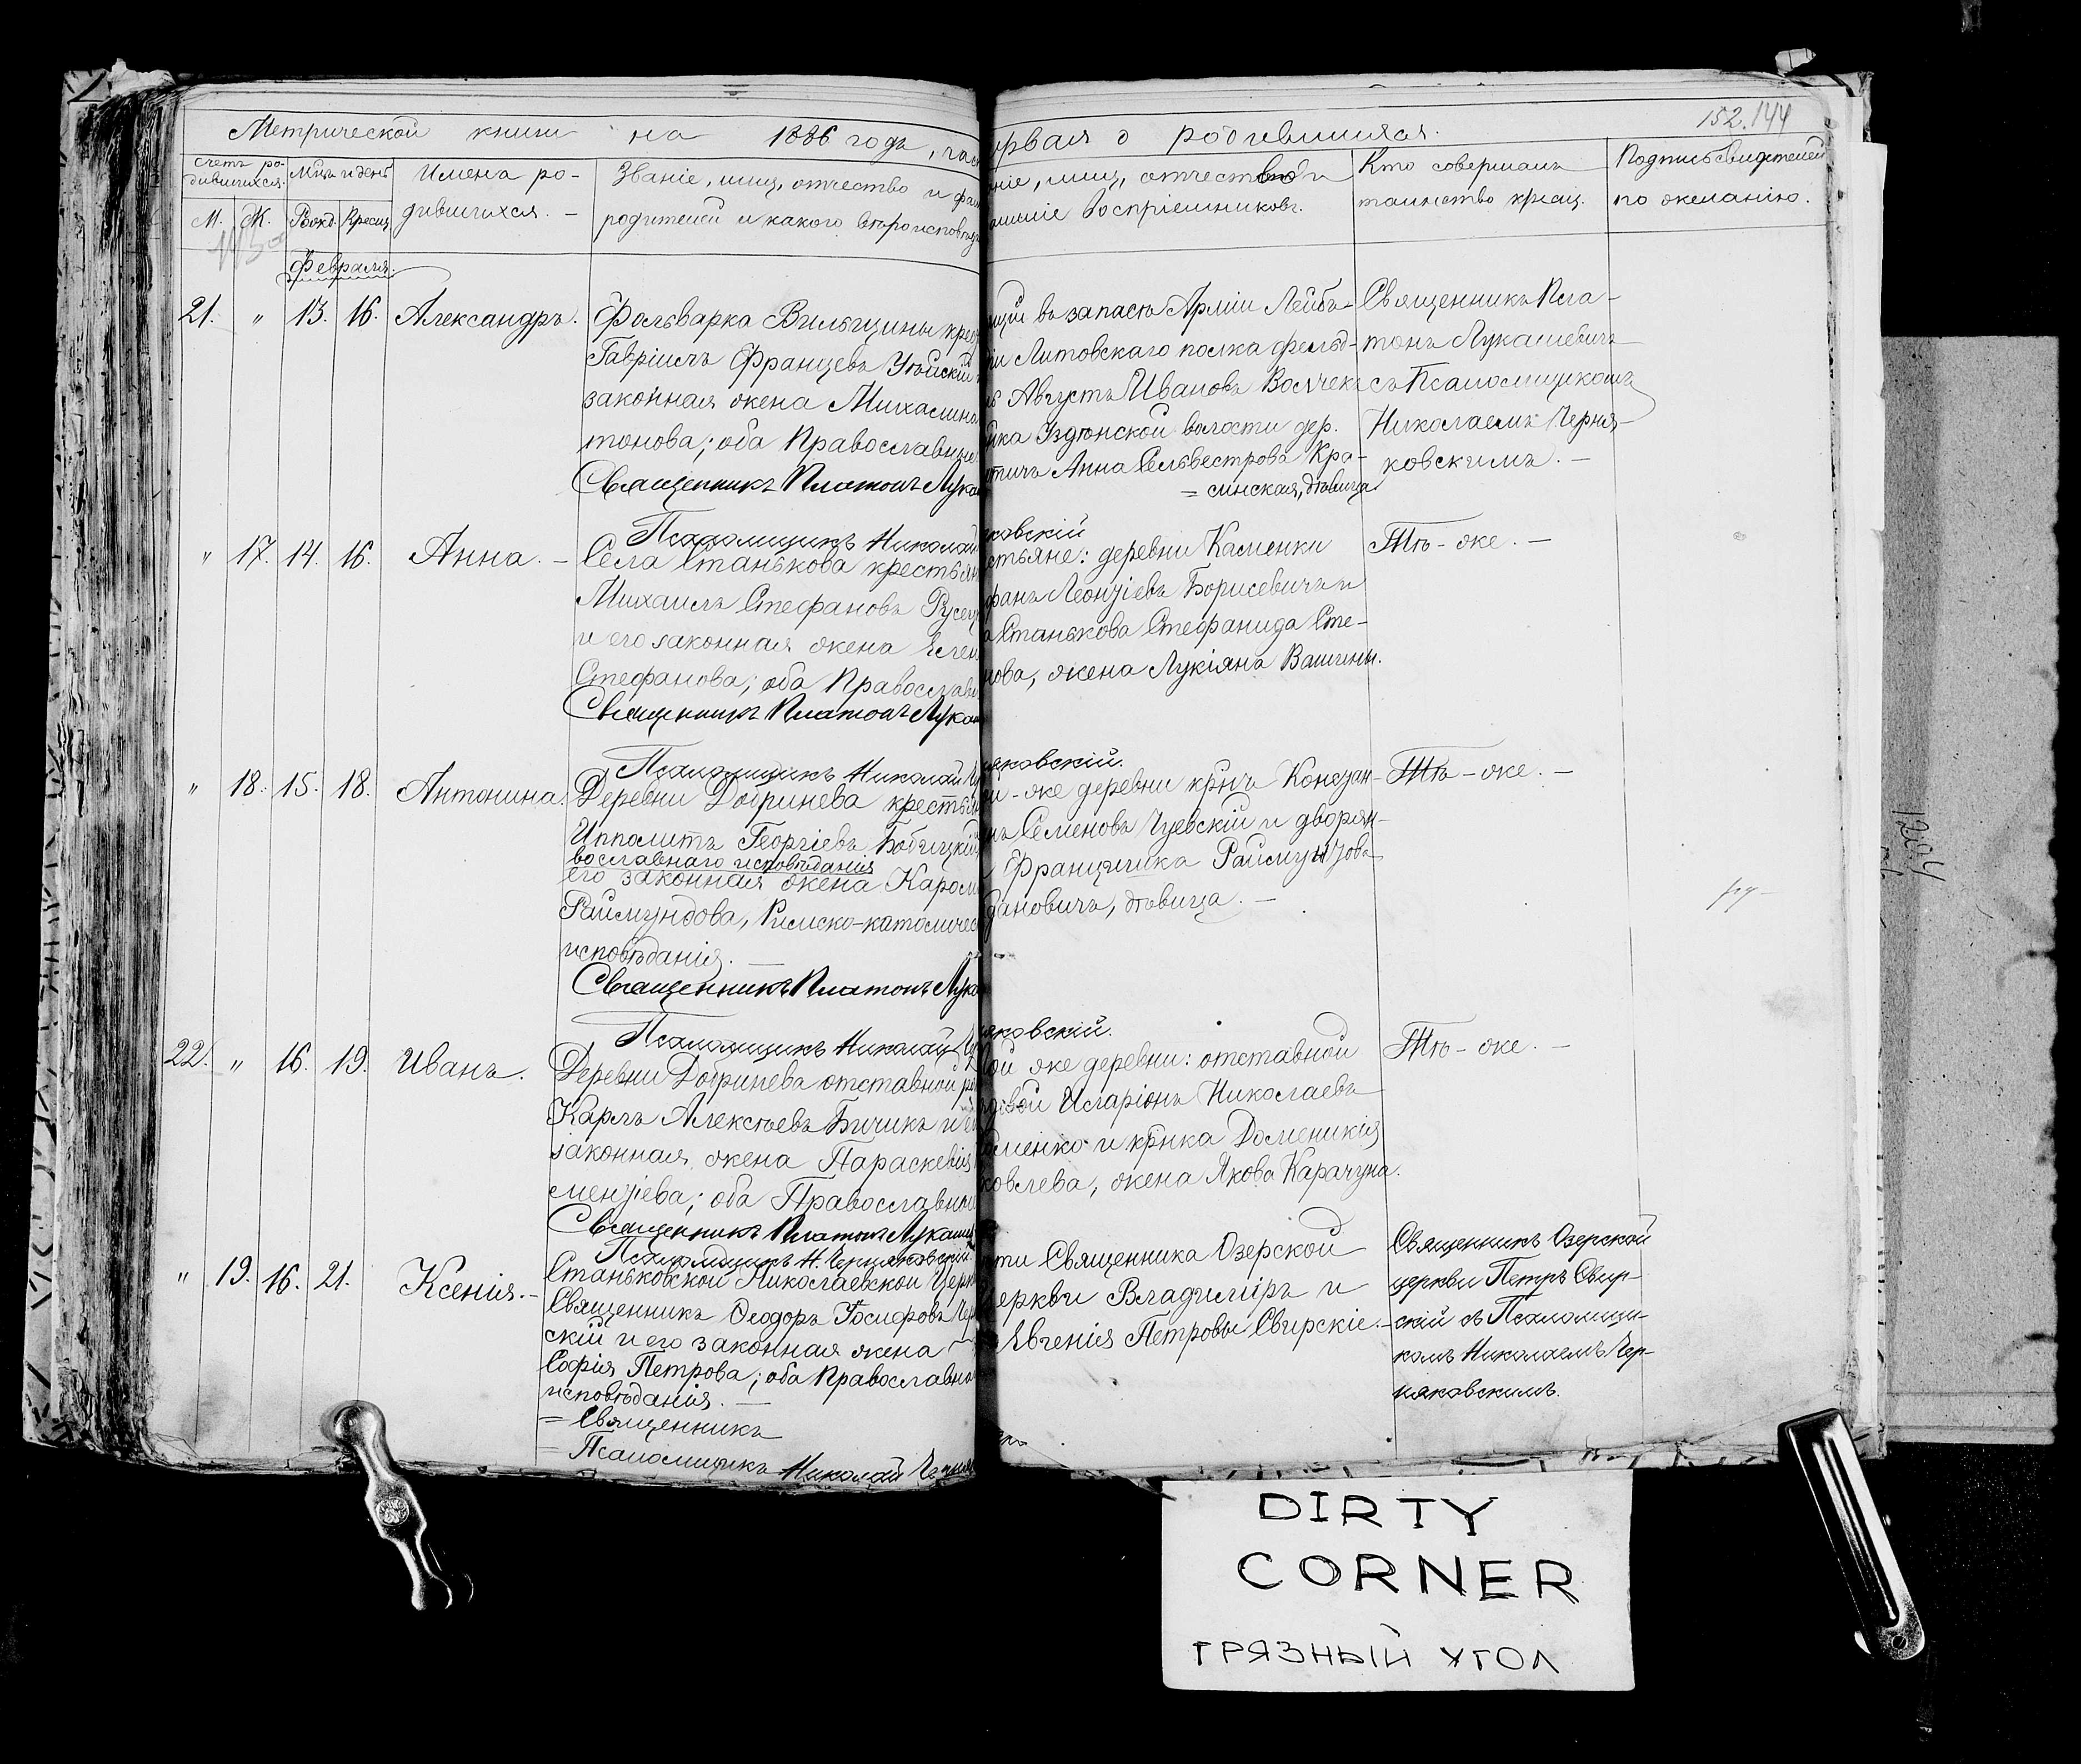 152. 144
Метрической книги на 1886 годъ, час
рвая о родившихся.
Счетъ ро-
дившихся.
М.
Ж.
Мѣць и день
Рожд.
Крещ.
Имена ро-
дившихся. -
Званіе, имя, отчество и фам
родителей и какого вѣроисповѣд
ніе, имя, отчество и
воспріемниковъ.
Кто совершалъ
таинство крещ.
Подпись свидѣтелей
по желанію.
Февраля.
21. " 13. 16. Александръ.
Фольварка Вильщины крес
Гавріилъ Францевъ
законная жена Михалина
тонова; оба Православны
Священникъ Платонъ Лука
Псаломщикъ Николай
въ запасѣ Арміи Лейбъ-
Литовскаго полка фельд-
Августъ Ивановъ Волчекъ
Уздѣнской волости дер.
Анна Сельвестрова Кра-
= синская, дѣвица
ковскій
Священникъ Пла-
тонъ Лукашевичъ
съ Псаломщикомъ
Николаемъ Черня-
ковскимъ. -
" 17. 14. 16. Анна. -
Села Станькова крестьян
Михаилъ Стефановъ Русец
и его законная жена Елен
Стефанова; оба Православ
Священникъ Платонъ Лука
Псаломщикъ Николай Ч
стьяне: деревни Каменки
фанъ Леонтіевъ Борисевичъ и
а Станькова Стефанида Сте-
нова, жена Лукіяна Вашины.
яковскій.
Тѣ-же. -
" 18. 15. 18. Антонина.
Деревни Добринева крестьян
Ипполитъ Георгіевъ Бобицкій
вославнаго исповѣданія
его законная жена Карол
Раймундова, Римско-католичес
исповѣданія. -
Священникъ Платонъ Лука
Псаломщикъ Николай Че
й-же деревни крнъ Констан-
нъ Семеновъ Чуевскій и дворян-
Францишка Раймундова
дановичъ, дѣвица. -
яковскій.
Тѣ-же. -
22. " 16. 19. Иванъ.
Деревни Добринева отставной ря
Карлъ Алексѣевъ Бичикъ и ег
законная жена Параскевія
ментіева; оба Православны
Священникъ Платонъ Лукаш
Псаломщикъ Н. Черняковскій.
ой же деревни: отставной
довой Иларіонъ Николаевъ
менко и крнка Доменикія
ковлева, жена Якова Карачуна.
Тѣ-же. -
" 19. 16. 21. Ксенія. -
Станьковской Николаевской Церк
Священникъ Ѳеодоръ Іосифовъ Чер
скій и его законная жена
Софія Петрова; оба Православна
исповѣданія. -
= Священникъ
= Псаломщикъ Николай Черня
ти Священника Озерской
церкви Владиміръ и
Евгенія Петровы Свирскіе. -
Священникъ Озерской
церкви Петръ Свир-
скій съ Псаломщи-
комъ Николаемъ Чер-
няковскимъ.
1204
DIRTY
CORNER
ГРЯЗНЫЙ УГОЛ